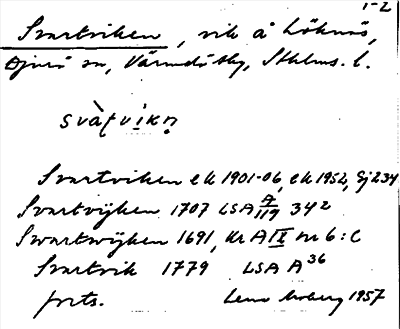 1-2
Svartviken, vik å Löknäs,
Djurö sn, Värmdö sky, Sthlms. l.
svàʈvikn̥
Svartviken ek 1901-06, ek 1952, Gj 234
Svartvijken 1707 LSA A/119 34²
Swartwijken 1691, Kr A IX nr 6:C
Svartvik 1779 LSA A 36
forts. Lena Moberg 1957